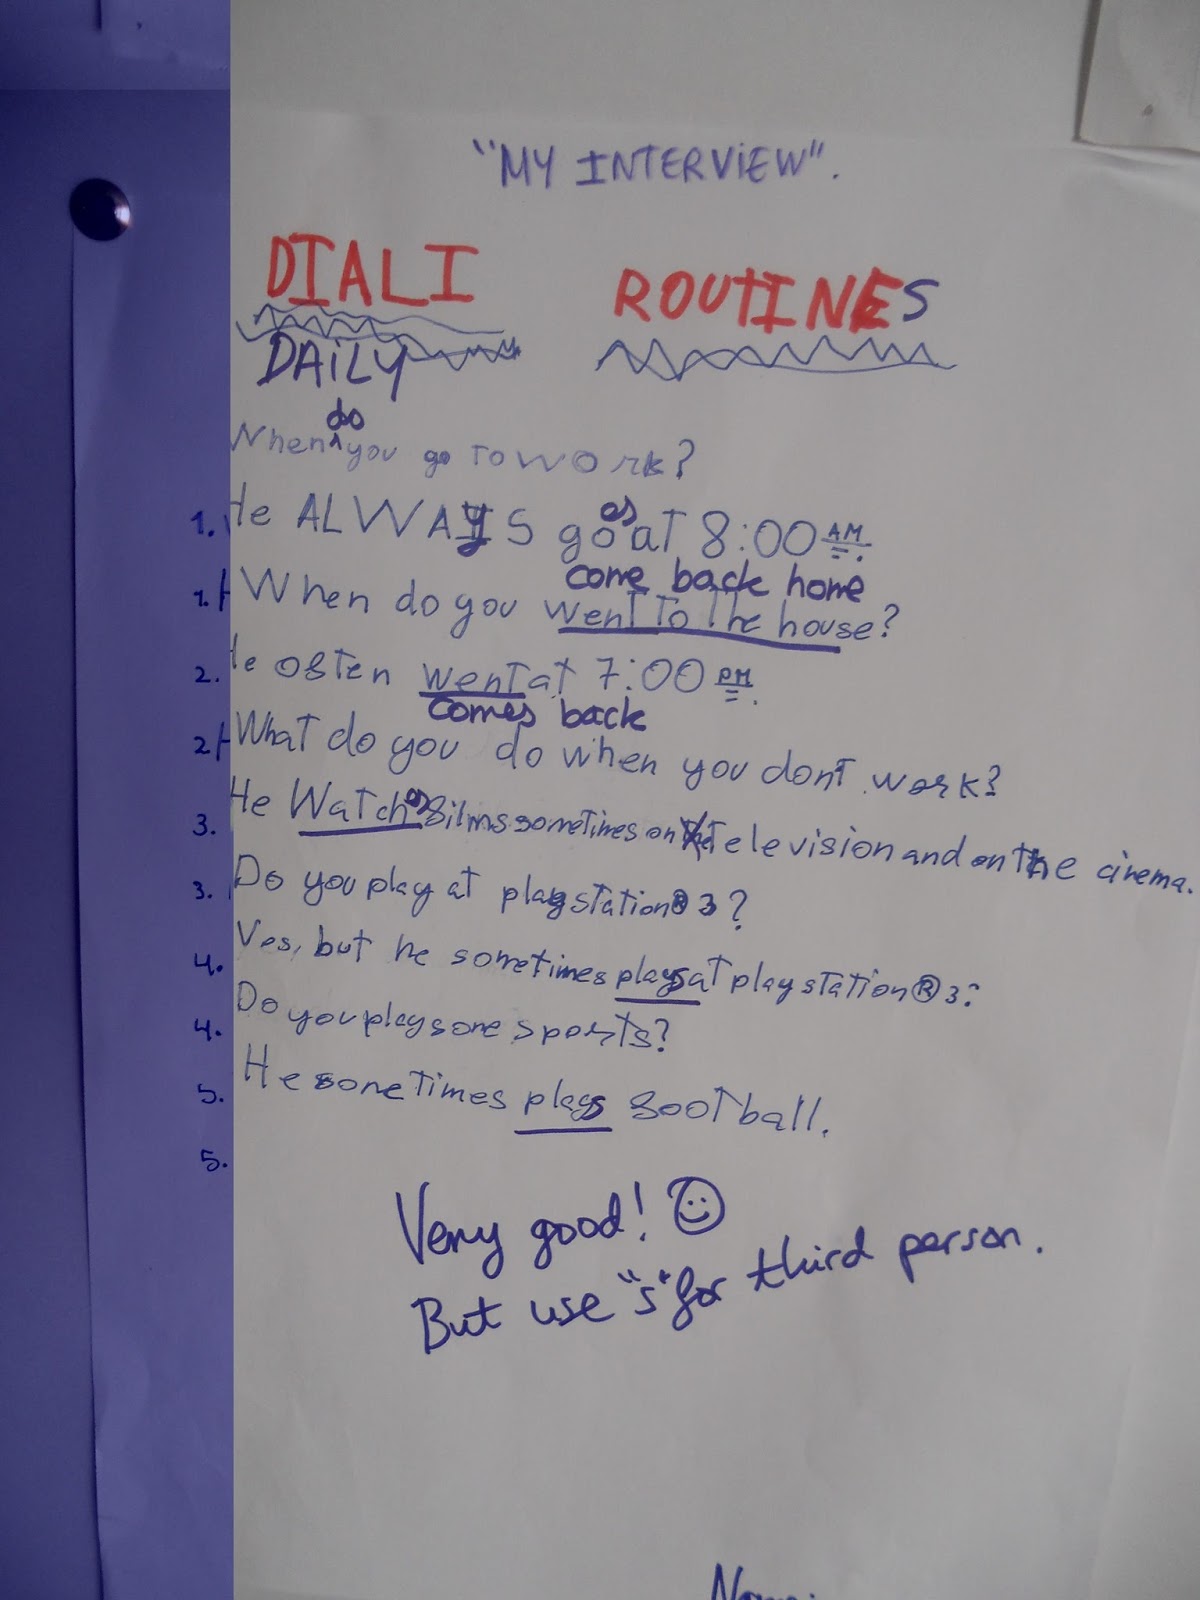 "MY INTERVIEW".
DIALI ROUTINES
DAILY
do
When you go to work?
1. He ALWAYS go at 8:00 AM.
es
come back home
1. When do you went to the house?
2. He often went at 7:00 PM.
comes back
2. What do you do when you dont work?
3. He Watches films sometimes on the television and on the cinema.
3. Do you play at playstation® 3?
4. Yes, but he sometimes plays at playstation® 3.
4. Do you play some sports?
5. He sometimes plays football.
5.
Very good! ☺
But use "s" for third person.